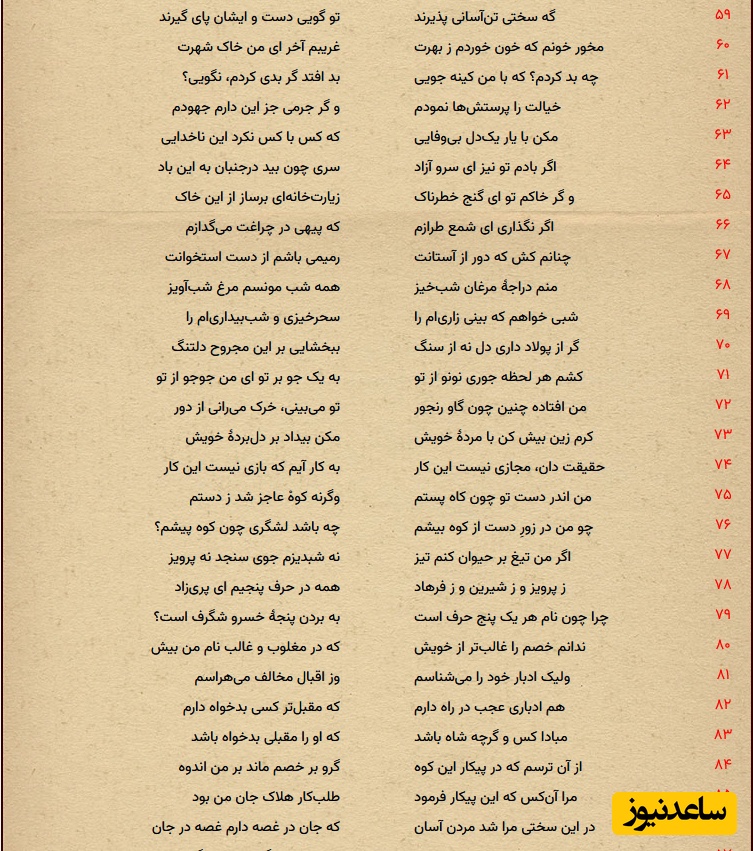 ۵۹ گه سختی تن‌آسانی پذیرند تو گویی دست و ایشان پای گیرند
۶۰ مخور خونم که خون خوردم ز بهرت غریبم آخر ای من خاک شهرت
۶۱ چه بد کردم؟ که با من کینه جویی بد افتد گر بدی کردم، نگویی؟
۶۲ خیالت را پرستش‌ها نمودم و گر جرمی جز این دارم جهودم
۶۳ مکن با یار یک‌دل بی‌وفایی که کس با کس نکرد این ناخدایی
۶۴ اگر بادم تو نیز ای سرو آزاد سری چون بید درجنبان به این باد
۶۵ و گر خاکم تو ای گنج خطرناک زیارت‌خانه‌ای برساز از این خاک
۶۶ اگر نگذاری ای شمع طرازم که پیهی در چراغت می‌گدازم
۶۷ چنانم کش که دور از آستانت رمیمی باشم از دست استخوانت
۶۸ منم دراجهٔ مرغان شب‌خیز همه شب مونسم مرغ شب‌آویز
۶۹ شبی خواهم که بینی زاری‌ام را سحرخیزی و شب‌بیداری‌ام را
۷۰ گر از پولاد داری دل نه از سنگ ببخشایی بر این مجروح دلتنگ
۷۱ کشم هر لحظه جوری نونو از تو به یک جو بر تو ای من جوجو از تو
۷۲ من افتاده چنین چون گاو رنجور تو می‌بینی، خرک می‌رانی از دور
۷۳ کرم زین بیش کن با مردهٔ خویش مکن بیداد بر دل‌بردهٔ خویش
۷۴ حقیقت دان، مجازی نیست این کار به کار آیم که بازی نیست این کار
۷۵ من اندر دست تو چون کاه پستم وگرنه کوهٔ عاجز شد ز دستم
۷۶ چو من در زورِ دست از کوه بیشم چه باشد لشگری چون کوه پیشم؟
۷۷ اگر من تیغ بر حیوان کنم تیز نه شبدیزم جوی سنجد نه پرویز
۷۸ ز پرویز و ز شیرین و ز فرهاد همه در حرف پنجیم ای پری‌زاد
۷۹ چرا چون نام هر یک پنج حرف است به بردن پنجهٔ خسرو شگرف است؟
۸۰ ندانم خصم را غالب‌تر از خویش که در مغلوب و غالب نام من بیش
۸۱ ولیک ادبار خود را می‌شناسم وز اقبال مخالف می‌هراسم
۸۲ هم ادباری عجب در راه دارم که مقبل‌تر کسی بدخواه دارم
۸۳ مبادا کس و گرچه شاه باشد که او را مقبلی بدخواه باشد
۸۴ از آن ترسم که در پیکار این کوه گرو بر خصم ماند بر من اندوه
مرا آن‌کس که این پیکار فرمود طلب‌کار هلاک جان من بود
در این سختی مرا شد مردن آسان که جان در غصه دارم غصه در جان
ساعدنیوز